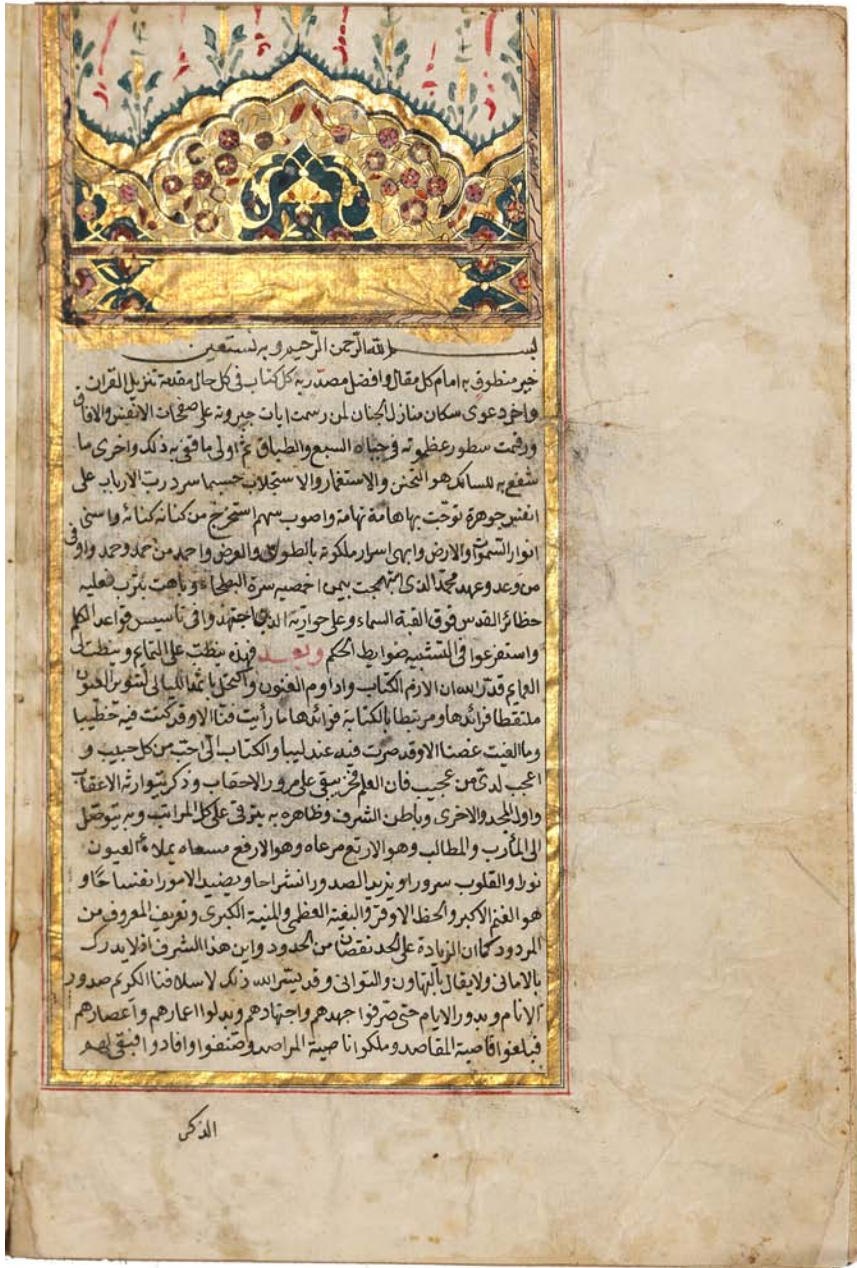 بسم الله الرحمن الرحيم وبه نستعين
خير منطوق به امام كل مقال وافضل مصدر به كل كتاب في كل حال مقدمة تنزيل القران
واخر دعوى سكان منازل الجنان لمن رسمت ايات جبروته على صفحات الانفس والافاق
ورقمت سطور عظموته في جباه السبع والطباق ثم اولى ما قفى به ذلك واخرى ما
شفع به للسالك هو التحنن والاستغفار والاستجلاب حسبما سرد رب الارباب على
انفس جوهرة توجت بها هامة تهامة واصوب سهم استخرج من كنانه كنانة واسنى
انوار السموات والارض وابهى اسرار ملكوته بالطول والعرض واحمد من حمد وحمد واوفى
من وعد وعهد محمد الذي ابتهجت بيمن اخمصيه سرة البطحاء وباهت بترب نعليه
حظائر القدس فوق القبة السماء وعلى حواريه الذين اجتهدوا في تاسيس قواعد الكلم
واستفرغوا في التشبيه ضوابط الحكم وبعد فهذه نيطت على التمايم ونيطت لي
العمايم قدر الله ان الازم الكتاب واداوم الفنون واكتحل باثمد الليالي لتنوير العيون
ملتقطا فرائدها ومرتبطا بالكتابة فوائدها ما رأيت فننا الا وقد كنت فيه خطيبا
وما الفيت غصنا الا وقد صرت فيه عندليبا والكتاب الي احب من كل حبيب و
اعجب لدي من عجيب فان العلم فخر يبقى على مرور الاحقاب وذكر يتوارثه الاعقاب
واول المجد والاخرى وباطن الشرف وظاهره به يترقى على كل المراتب وبه يتوصل
الى المأرب والمطالب وهو الاربع مرعاه وهو الارفع مسعاه يملاء العيون
نورا والقلوب سرورا ويزيد الصدور انشراحا ويفيد الامور انفساحا و
هو الغنم الاكبر والحظ الاوفر والبغية العظمى والمنية الكبرى وتعريف المعروف من
المردود كما ان الزيادة على الحد نقصان من الحدود واين هذا الشرف اذ لا يدرك
بالاماني ولا يقال بالتهاون والتواني وقد يسر الله ذلك لاسلافنا الكريم صدور
الانام وبدور الايام حتى صرفوا جهدهم واجتهادهم وبدلوا اعمارهم واعصارهم
فبلغوا قاصية المقاصد وملكوا ناصية المراصد وصنفوا وافادوا فبقي لهم
الذكر